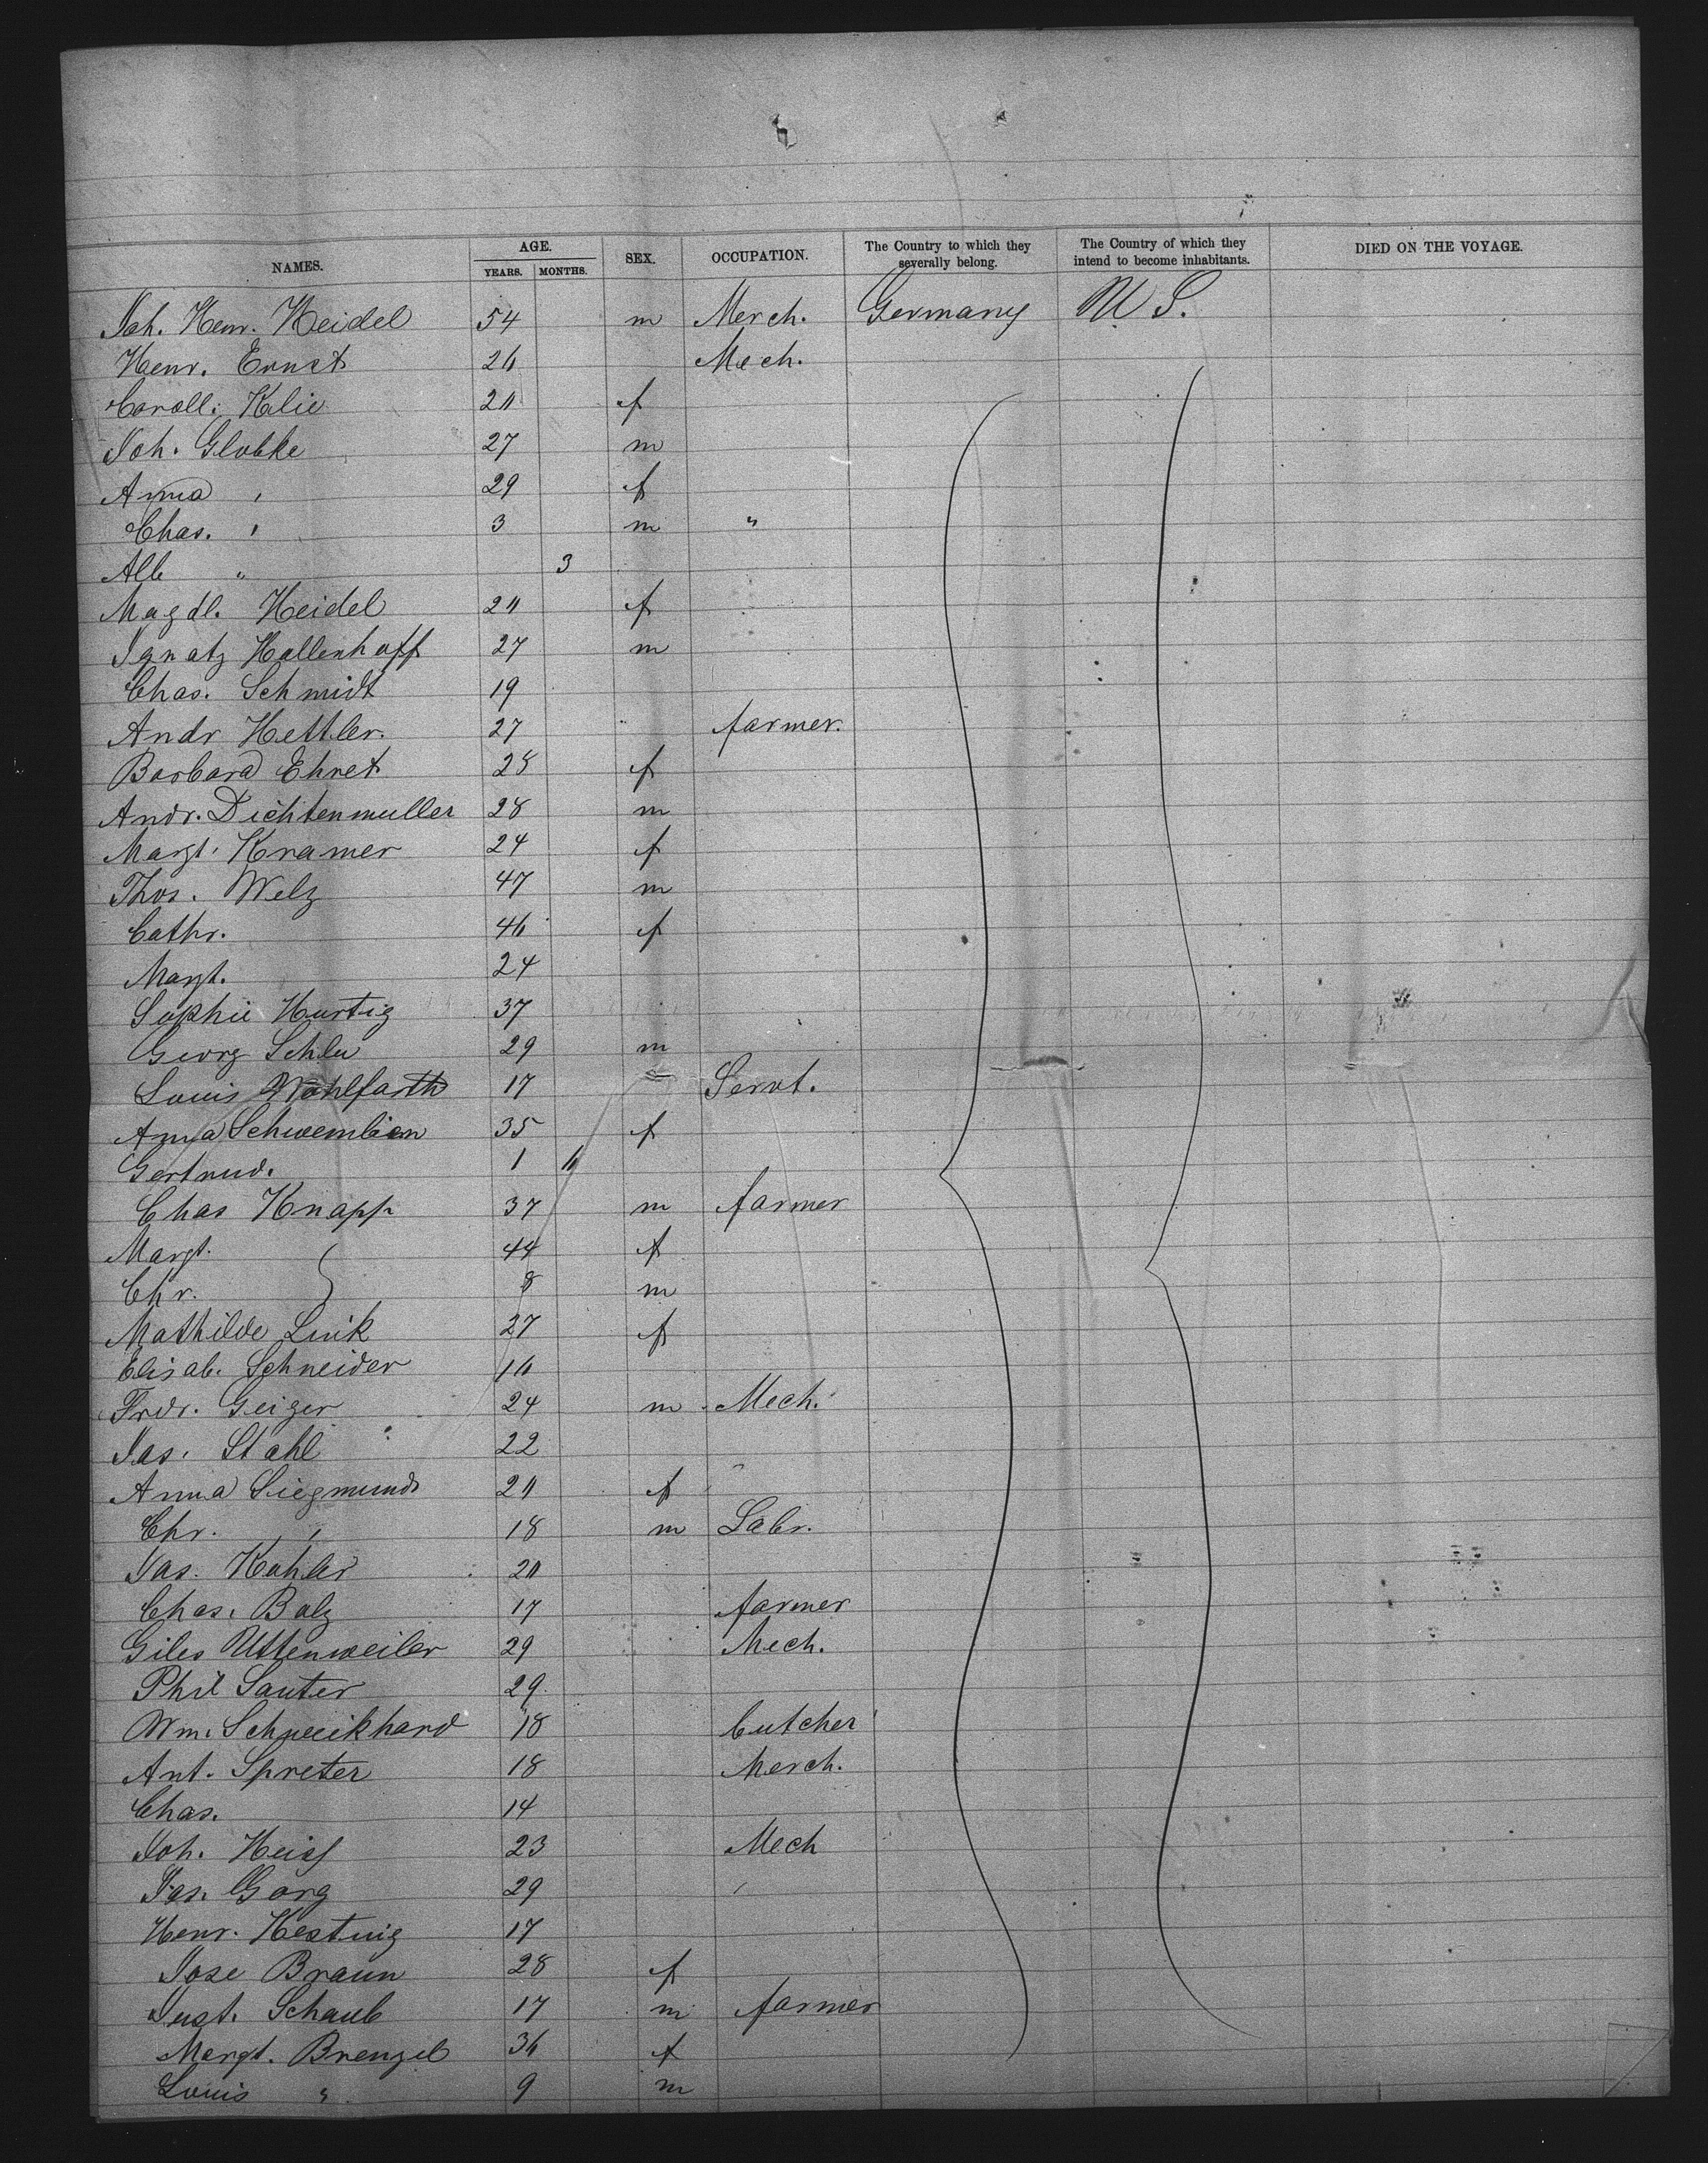 NAMES. AGE. YEARS. MONTHS. SEX. OCCUPATION. The Country to which they severally belong. The Country of which they intend to become inhabitants. DIED ON THE VOYAGE.
Joh. Henr. Heidel 54 m Merch. Germany U S.
Henr. Ernst 26 Mech.
Caroll. Kalie f
Joh. Globke 27 m
Anna " 29 f
Chas. " 3 m "
Alb " 3
Magdl. Heidel f
Ignatz Hollenhoff 27 m
Chas. Schmidt 19
Andr Hettler. 27 farmer.
Barbara Ehret 28 f
Andr. Dichtenmuller 28 m
Margt. Kramer 24 f
Thos. Welz 47 m
Cathr. 46 f
Margt. 24
Sophie Hartig 37
Georg 29 m
Louis Wohlfarth 17 Servt.
Anna 35 f
Gertrud. 1
Chas Knapp 37 m farmer
Margt. 44 f
Chr. 8 m
Mathilde Link 27 f
Elisab. Schneider 16
Frdr. Geiger 24 m Mech.
Jas. Stahl 22
Anna Siegmund f
Chr. " 18 m Labr.
Jas. Kohler
Chas. Balz 17 farmer
Giles Uttenweiler 29 Mech.
Phil Sauter 29
Wm. Schweikhard 18 butcher
Ant. Spreter 18 Merch.
Chas. 14
Joh. Heiss 23 Mech
Jas. Garg 29 "
Henr. 17
Jose Braun 28 f
Just. Schaub 17 m farmer
Margt. Brenzel 36 f
Louis " 9 m